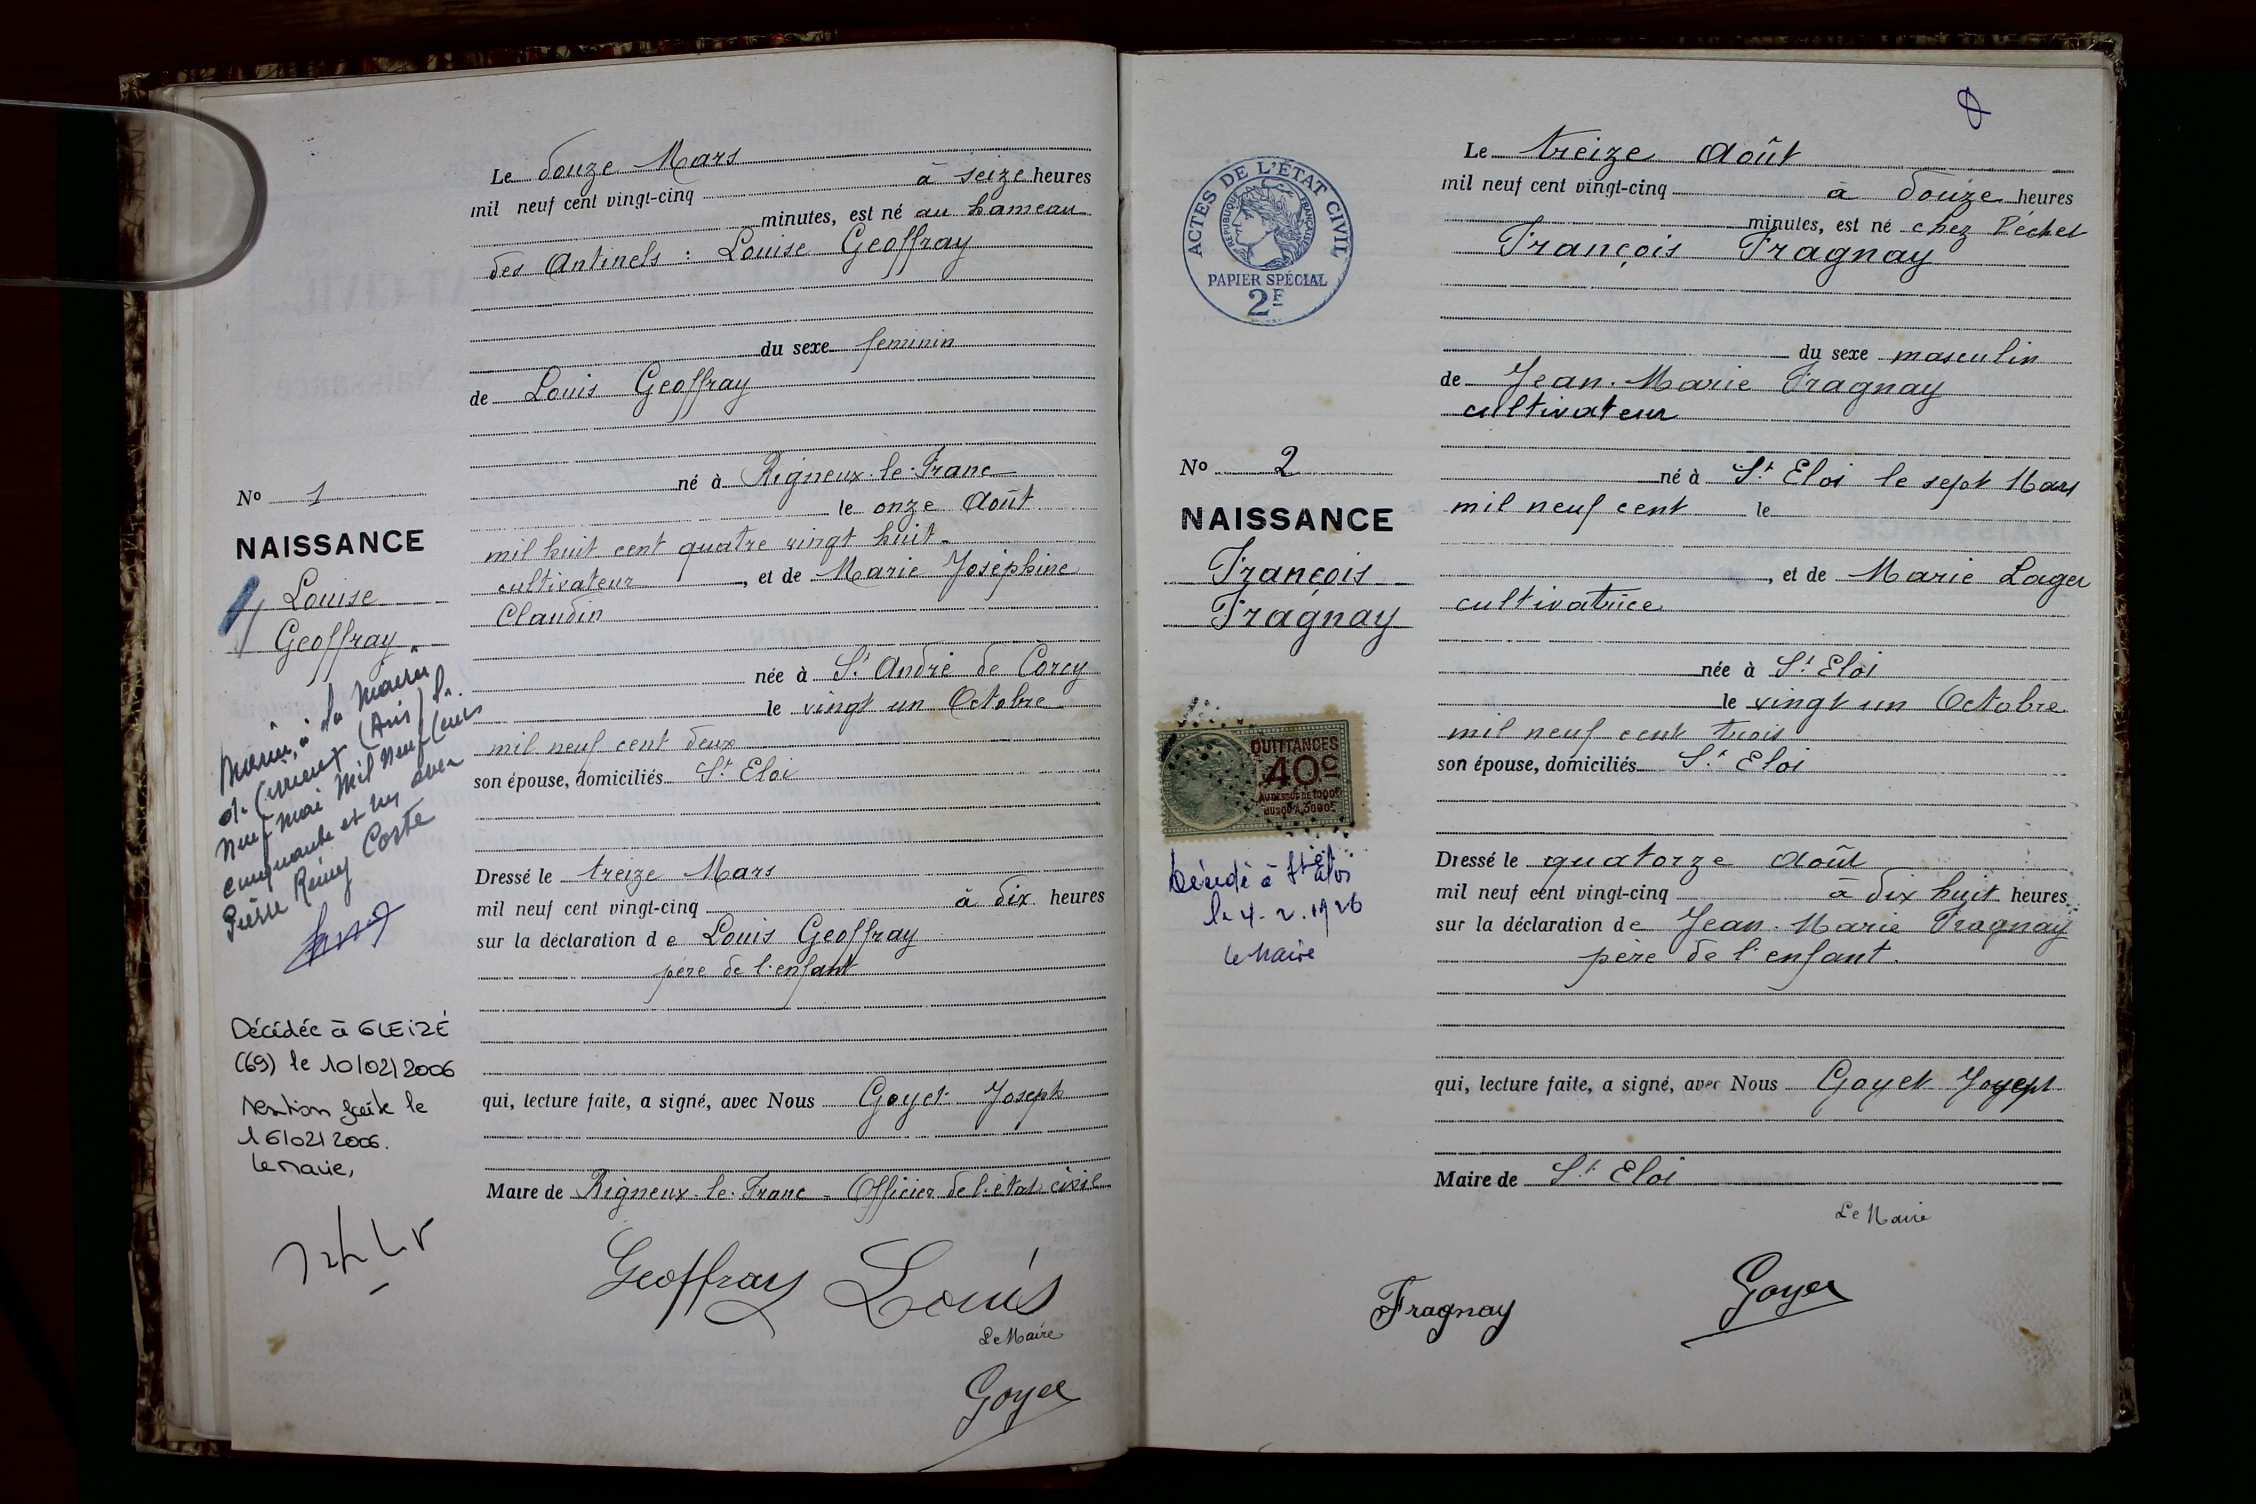 Le douze Mars
mil neuf cent vingt-cinq à seize heures
minutes, est né au hameau
des Antinels : Louise Geoffray
du sexe feminin
de Louis Geoffray
né à Rigneux-le-Franc
le onze Août
mil huit cent quatre vingt huit
cultivateur, et de Marie Joséphine
Claudin
née à St André de Corcy
le vingt un Octobre
mil neuf cent deux
son épouse, domiciliés St Eloi
Dressé le treize Mars
mil neuf cent vingt-cinq à dix heures
sur la déclaration de Louis Geoffray
père de l'enfant
qui, lecture faite, a signé, avec Nous Goyet Joseph
Maire de Rigneux-le-Franc - Officier de l'état civil
Geoffray Louis
Le Maire
Goyet
No 1
NAISSANCE
Louise
Geoffray
Mariée à la Mairie
de (Ain) le
neuf mai mil neuf cent
cinquante et un avec
Pierre Rémy Coste
Décédée à GLEIZÉ
(69) le 10/02/2006
Mention faite le
16/02/2006.
Le Maire,
ACTES DE L'ÉTAT CIVIL
RÉPUBLIQUE FRANÇAISE
PAPIER SPÉCIAL
2F
No 2
NAISSANCE
François
Fragnay
QUITTANCES
40c
AU DESSUS DE 1000F
JUSQU'À 3000F
Décédé à St Eloi
le 4-2-1926
Le Maire
Le treize Août
mil neuf cent vingt-cinq à douze heures
minutes, est né chez Péchet
François Fragnay
du sexe masculin
de Jean-Marie Fragnay
cultivateur
né à St Eloi le sept Mars
mil neuf cent le
, et de Marie Lager
cultivatrice
née à St Eloi
le vingt un Octobre
mil neuf cent trois
son épouse, domiciliés St Eloi
Dressé le quatorze Août
mil neuf cent vingt-cinq à dix huit heures
sur la déclaration de Jean-Marie Fragnay
père de l'enfant.
qui, lecture faite, a signé, avec Nous Goyet Joseph
Maire de St Eloi
Le Maire
Fragnay Goyet